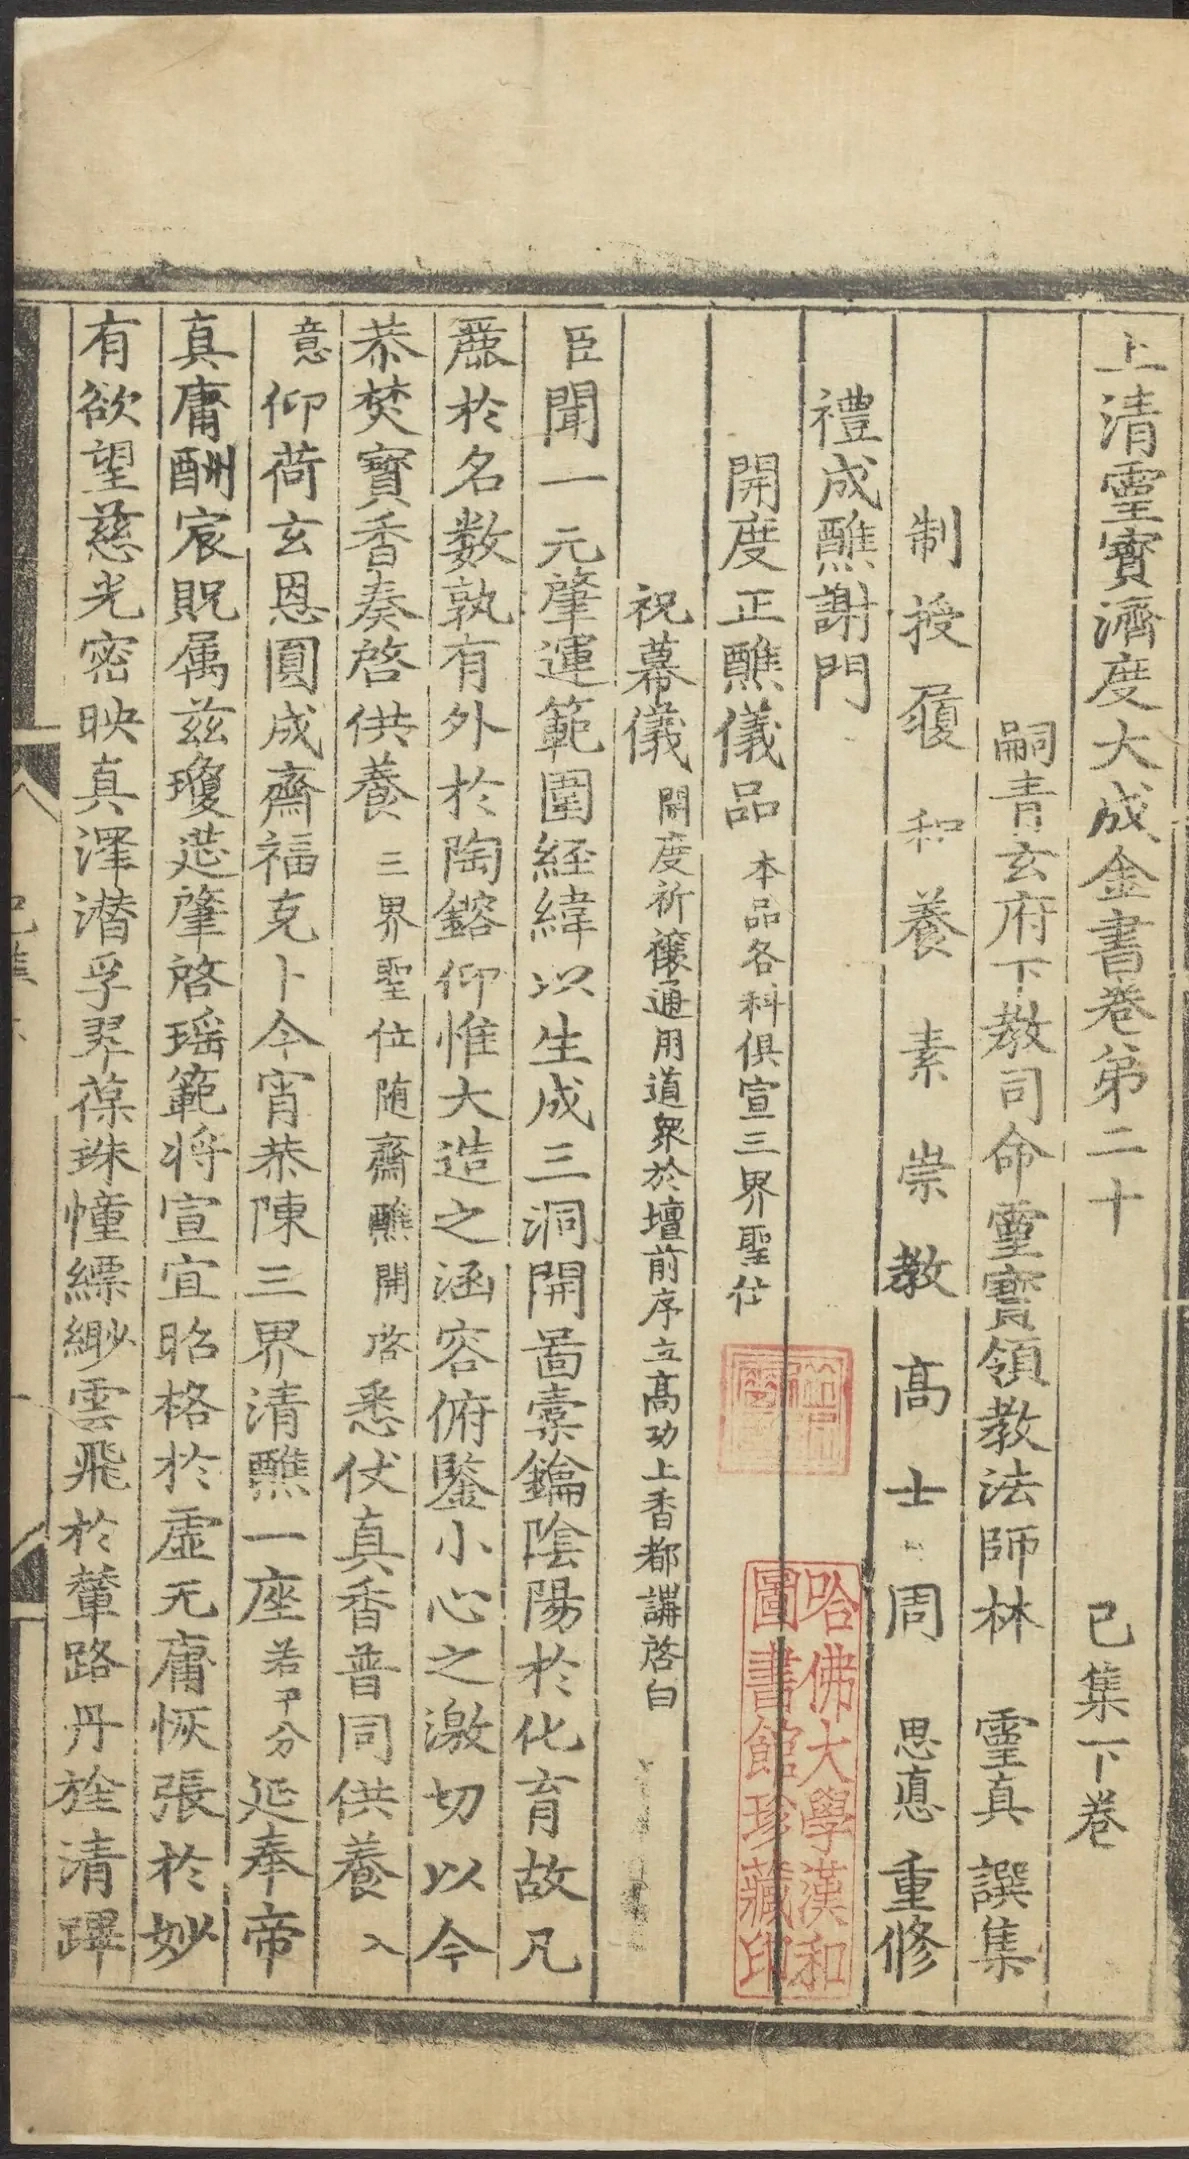 上清靈寶濟度大成金書卷第二十　己集下卷
嗣青玄府下教司命靈寶領教法師林　靈真　譔集
制授履和養素崇教高士周　思悳　重修
禮成醮謝門
開度正醮儀品　本品各科俱宣三界聖位
祝幕儀　開度祈禳通用道衆於壇前序立高功上香都講啓白
臣聞一元肇運範圍經緯以生成三洞開啚橐鑰陰陽於化育故凡
麗於名數孰有外於陶鎔仰惟大造之涵容俯鑒小心之激切以今
恭焚寶香奏啓供養　三界聖位隨齋醮開啓悉伏真香普同供養入
意仰荷玄恩圓成齋福克卜今宵恭陳三界清醮一座若干分延奉帝
真庸酬宸貺属兹瓊莚肇啓瑶範将宣宜昭格於虛无庸恢張於妙
有欲望慈光密映真澤潜孚翠葆珠幢縹緲雲飛於輦路丹旌清蹕
哈佛大學漢和
圖書館珍藏印